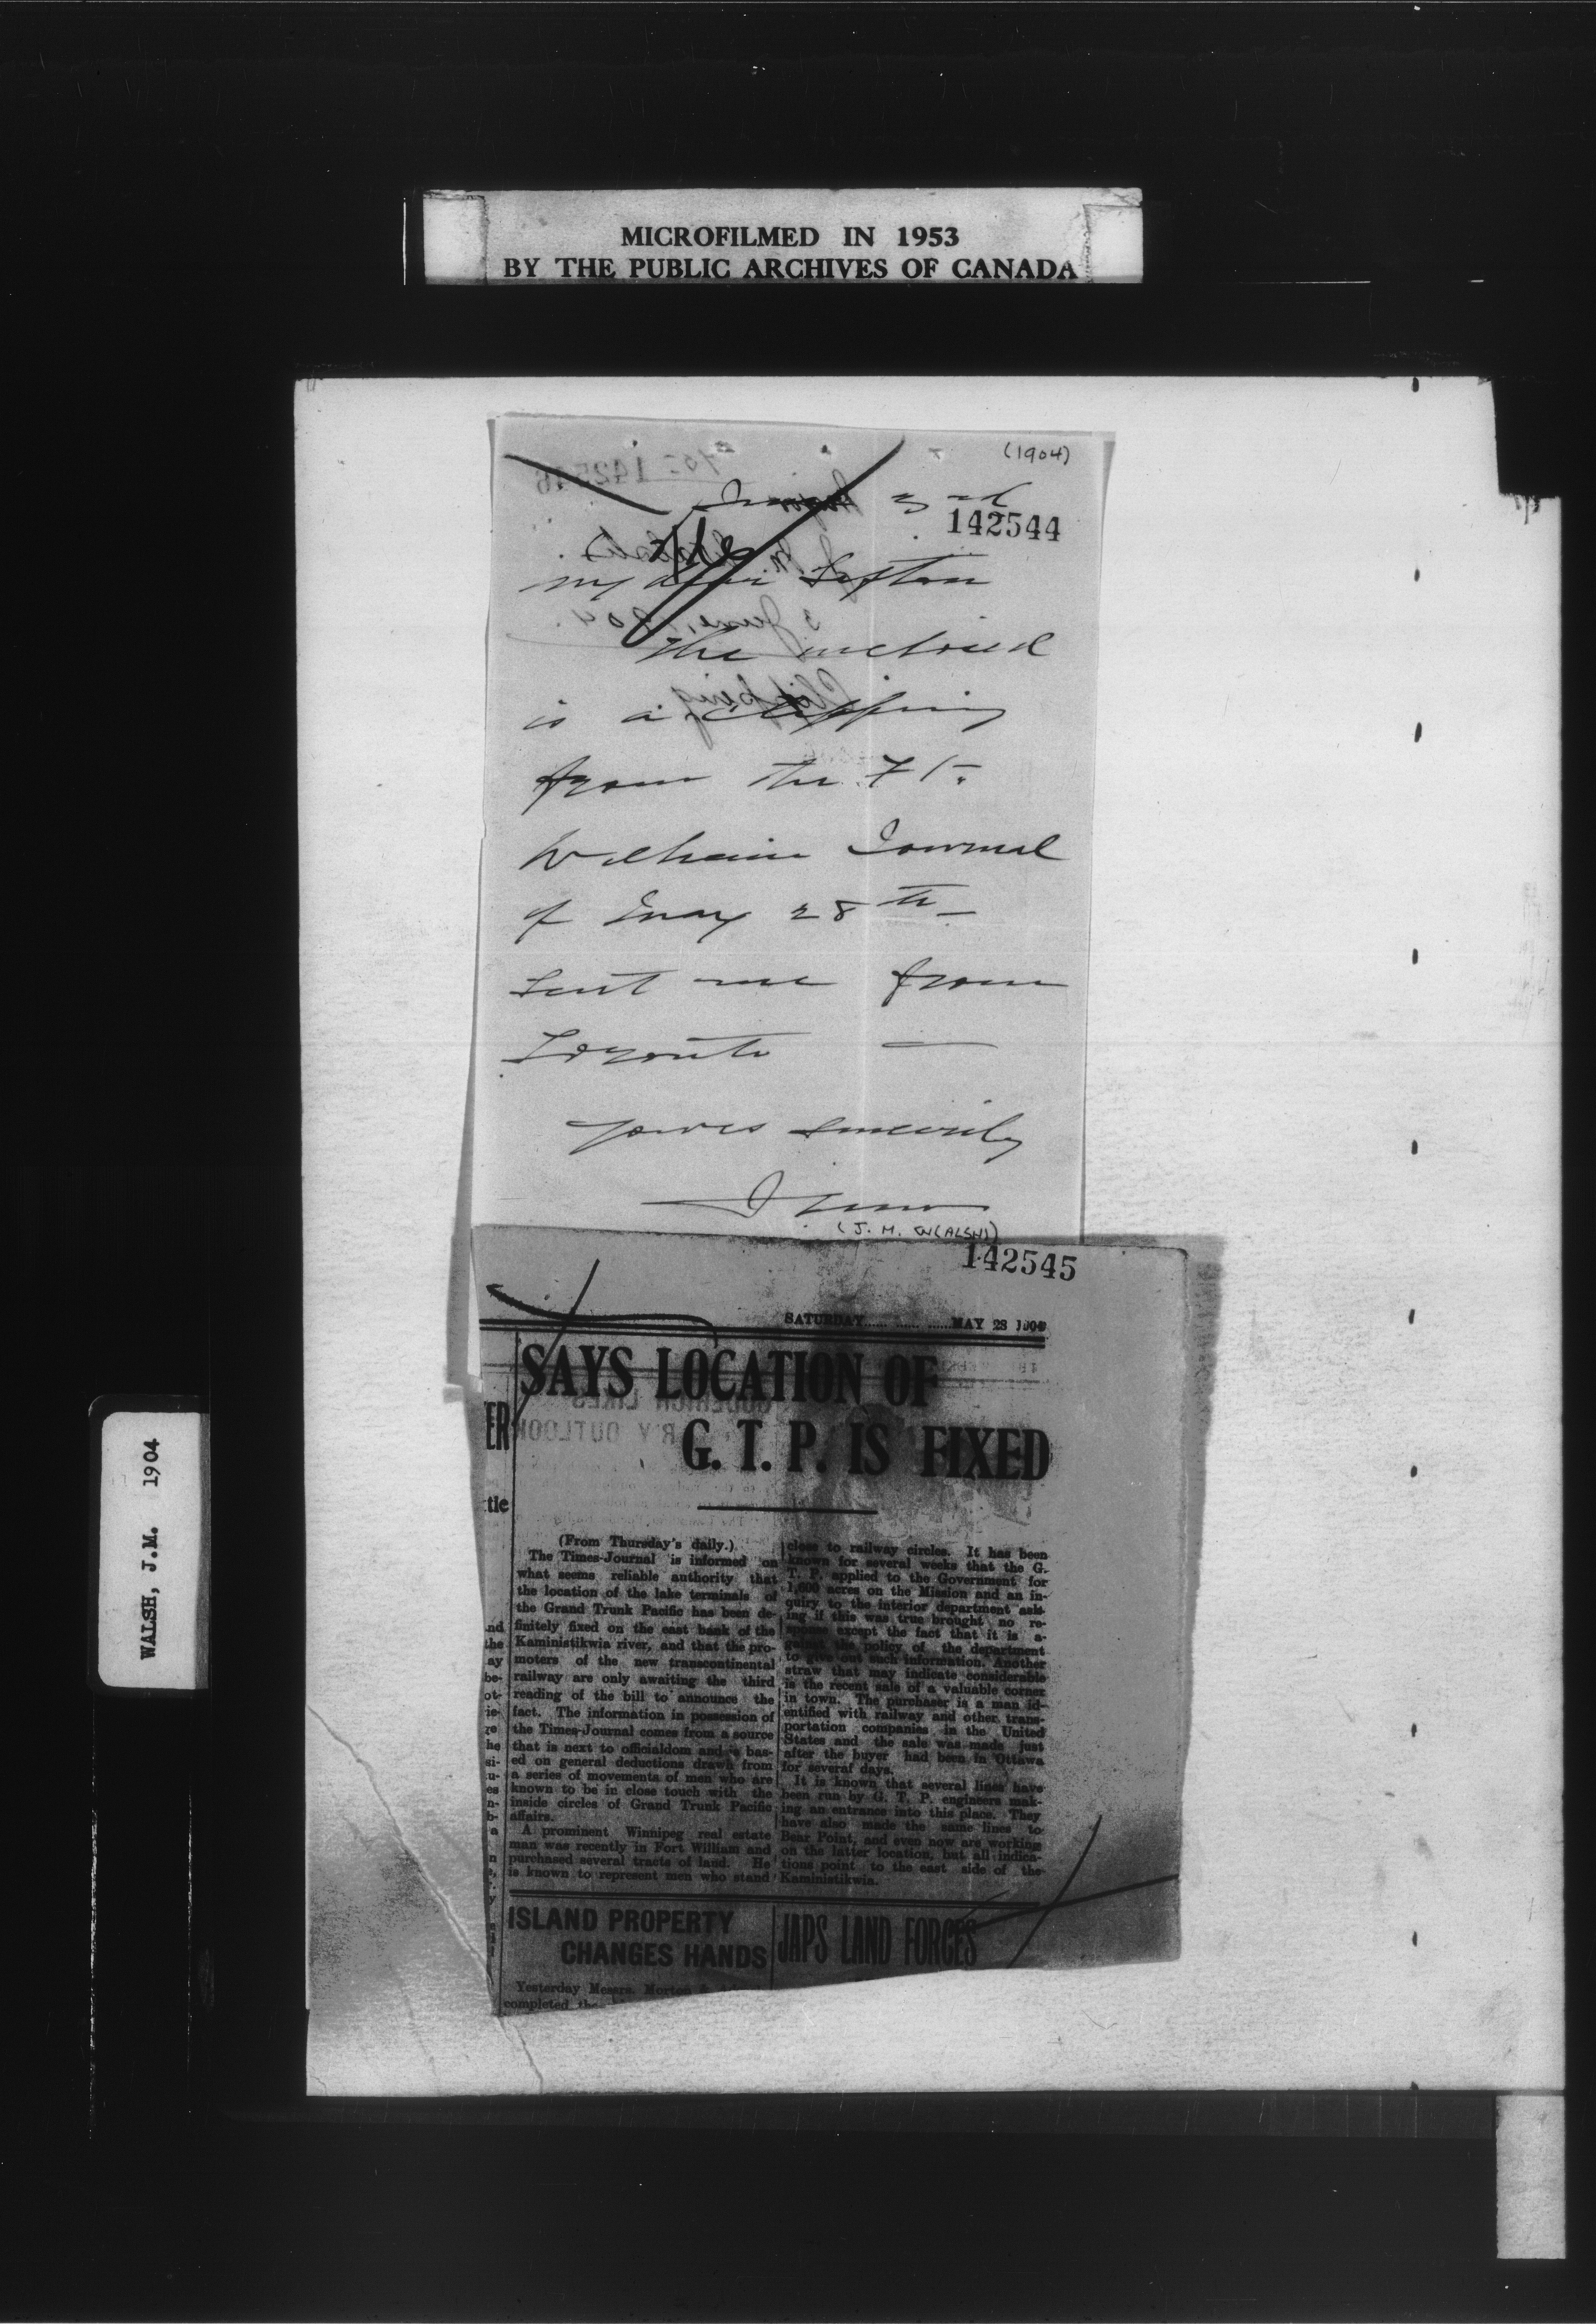 MICROFILMED IN 1953
BY THE PUBLIC ARCHIVES OF CANADA
WALSH, J.M. 1904
(1904)
June 3rd
142544
My dear Sifton
The inclosed
is a clipping
from the Ft.
William Journal
of May 28th
sent me from
Toronto —
Yours sincerely
(J. M. W(ALSH)
142545
SATURDAY...... ...... ......MAY 28 1904
SAYS LOCATION OF
G. T. P. IS FIXED
ER
tle
(From Thursday's daily.)
The Times-Journal is informed on
what seems reliable authority that
the location of the lake terminals of
the Grand Trunk Pacific has been de-
finitely fixed on the east bank of the
Kaministikwia river, and that the pro-
moters of the new transcontinental
railway are only awaiting the third
reading of the bill to announce the
fact. The information in possession of
the Times-Journal comes from a source
that is next to officialdom and is bas-
ed on general deductions drawn from
a series of movements of men who are
known to be in close touch with the
inside circles of Grand Trunk Pacific
affairs.
A prominent Winnipeg real estate
man was recently in Fort William and
purchased several tracts of land. He
is known to represent men who stand
close to railway circles. It has been
known for several weeks that the G.
T. P. applied to the Government for
1,600 acres on the Mission and an in-
quiry to the interior department ask-
ing if this was true brought no re-
sponse except the fact that it is a-
gainst the policy of the department
to give out such information. Another
straw that may indicate considerable
is the recent sale of a valuable corner
in town. The purchaser is a man id-
entified with railway and other trans-
portation companies in the United
States and the sale was made just
after the buyer had been in Ottawa
for several days.
It is known that several lines have
been run by G. T. P. engineers mak-
ing an entrance into this place. They
have also made the same lines to
Bear Point, and even now are working
on the latter location, but all indica-
tions point to the east side of the
Kaministikwia.
ISLAND PROPERTY
CHANGES HANDS
Yesterday Messrs. Morton &
completed the
JAPS LAND FORCES